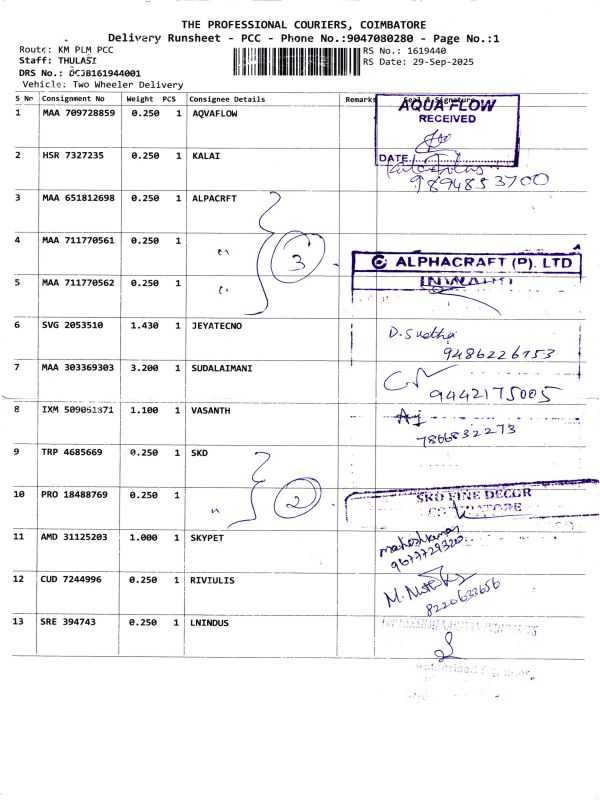 THE PROFESSIONAL COURIERS, COIMBATORE
Delivery Runsheet - PCC - Phone No.:9047080280 - Page No.:1
Route: KM PLM PCC
RS No.: 1619440
Staff: THULASI
RS Date: 29-Sep-2025
DRS No.: DCJB161944001
Vehicle: Two Wheeler Delivery
S No Consignment No Weight PCS Consignee Details Remarks Seal & Signature
1 MAA 709728859 0.250 1 AQVAFLOW
AQUA FLOW
RECEIVED
DATE
2 HSR 7327235 0.250 1 KALAI
9894853700
3 MAA 651812698 0.250 1 ALPACRFT
4 MAA 711770561 0.250 1 "
3
ALPHACRAFT (P). LTD
INWARD
5 MAA 711770562 0.250 1 "
6 SVG 2053510 1.430 1 JEYATECNO
D. Suetha
9486226753
7 MAA 303369303 3.200 1 SUDALAIMANI
9442175005
8 IXM 509051371 1.100 1 VASANTH
7866832273
9 TRP 4685669 0.250 1 SKD
10 PRO 18488769 0.250 1 "
2
SKD FINE DECOR
COIMBATORE
11 AMD 31125203 1.000 1 SKYPET
maheshkumar
9677729320
12 CUD 7244996 0.250 1 RIVIULIS
8220633656
13 SRE 394743 0.250 1 LNINDUS